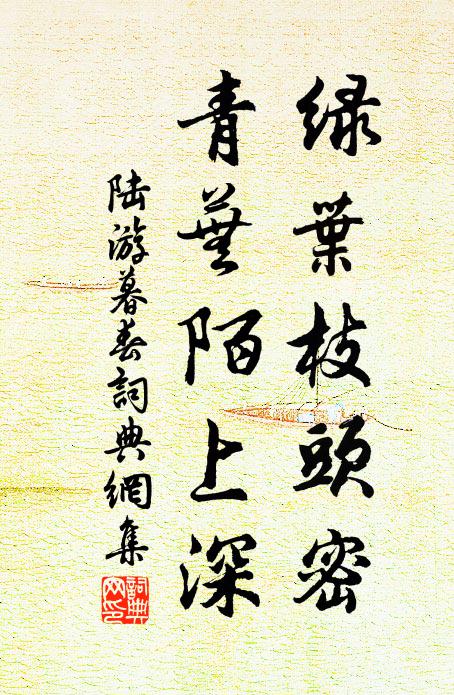 绿葉枝頭密
青蕪陌上深
陆游暮春詞典網集
詞典
网印